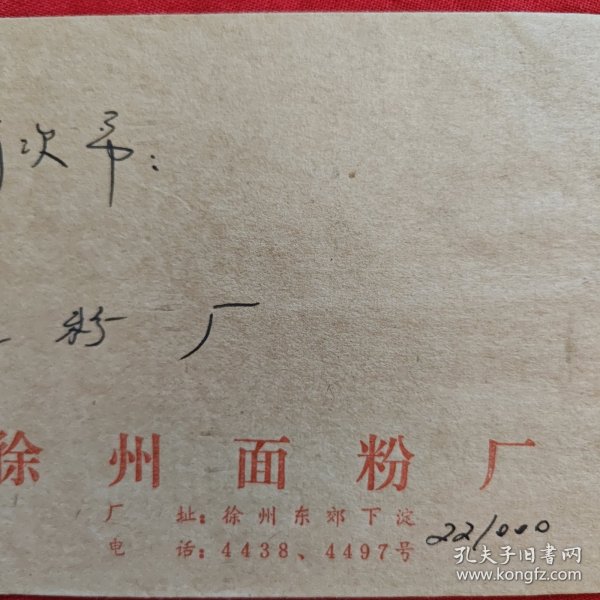 次帚：
粉厂
徐州面粉厂
厂 址：徐州东郊下淀
电 话：4438、4497号
221000
孔夫子旧书网
www.kongfz.com